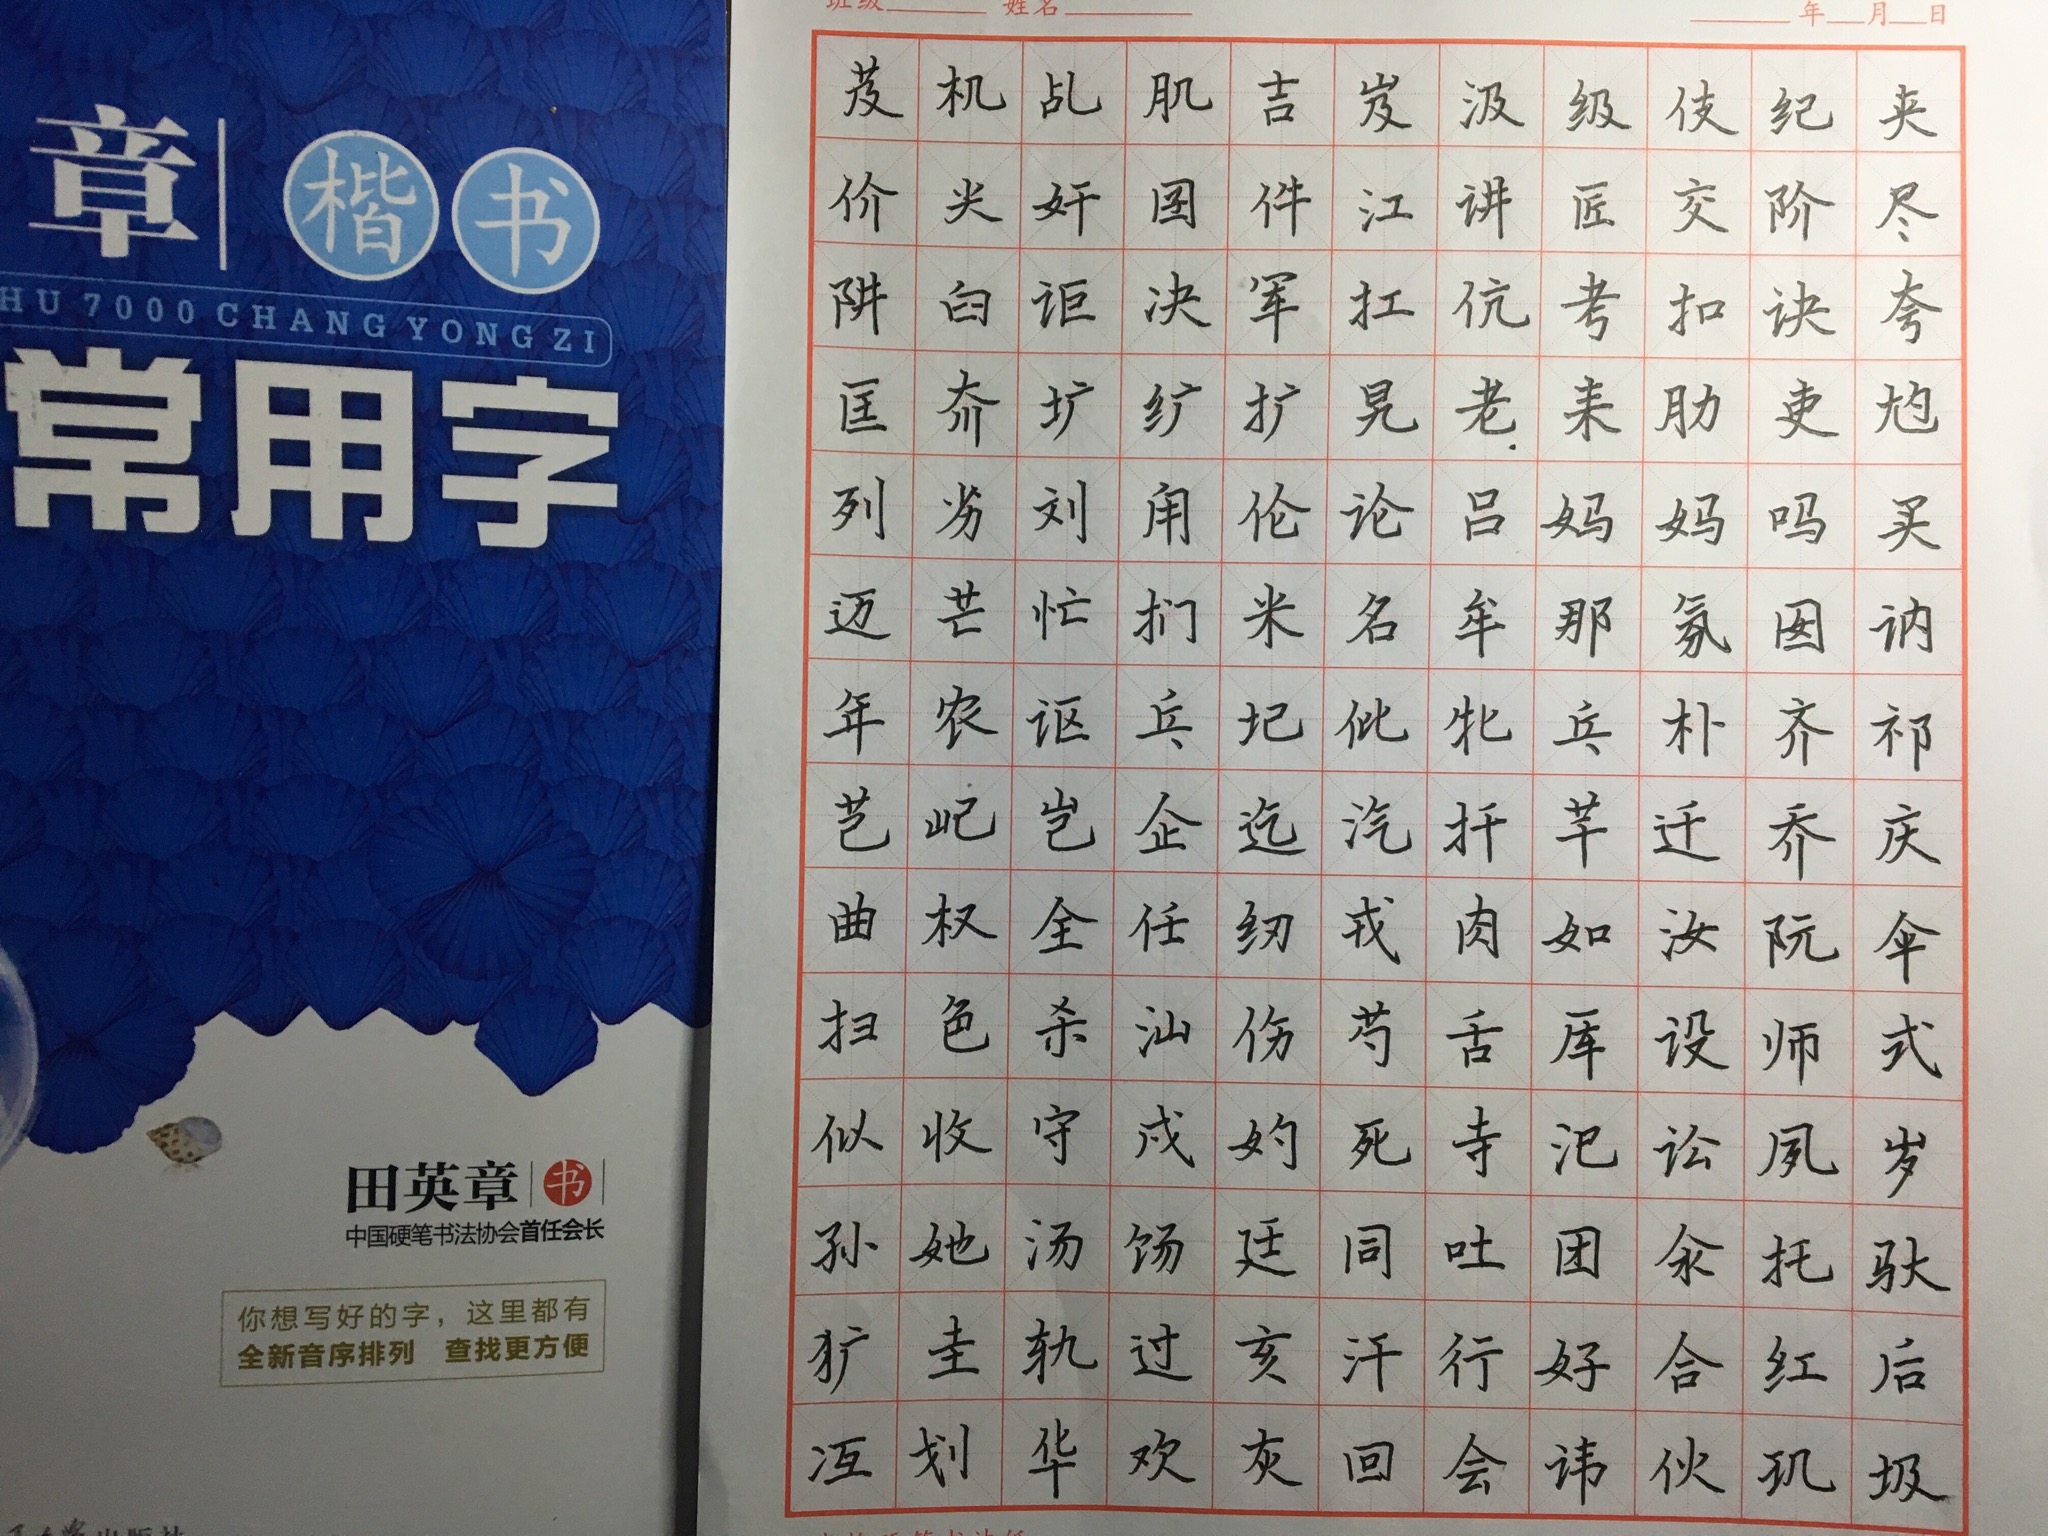 章 楷书
HU 7000 CHANG YONG ZI
常用字
田英章 书
中国硬笔书法协会首任会长
你想写好的字，这里都有
全新音序排列 查找更方便
班级 姓名 年 月 日
芨 机 乩 肌 吉 岌 汲 级 伎 纪 夹
价 尖 奸 囝 件 江 讲 匠 交 阶 尽
阱 臼 讵 决 军 扛 伉 考 扣 诀 夸
匡 夼 圹 纩 扩 旯 老 耒 肋 吏 尥
列 劣 刘 甪 伦 论 吕 妈 妈 吗 买
迈 芒 忙 扪 米 名 牟 那 氖 囡 讷
年 农 讴 乓 圮 仳 牝 乓 朴 齐 祁
芑 屺 岂 企 迄 汽 扦 芊 迁 乔 庆
曲 权 全 任 纫 戎 肉 如 汝 阮 伞
扫 色 杀 汕 伤 芍 舌 厍 设 师 式
似 收 守 戍 妁 死 寺 汜 讼 夙 岁
孙 她 汤 饧 廷 同 吐 团 汆 托 驮
犷 圭 轨 过 亥 汗 行 好 合 红 后
冱 划 华 欢 灰 回 会 讳 伙 玑 圾